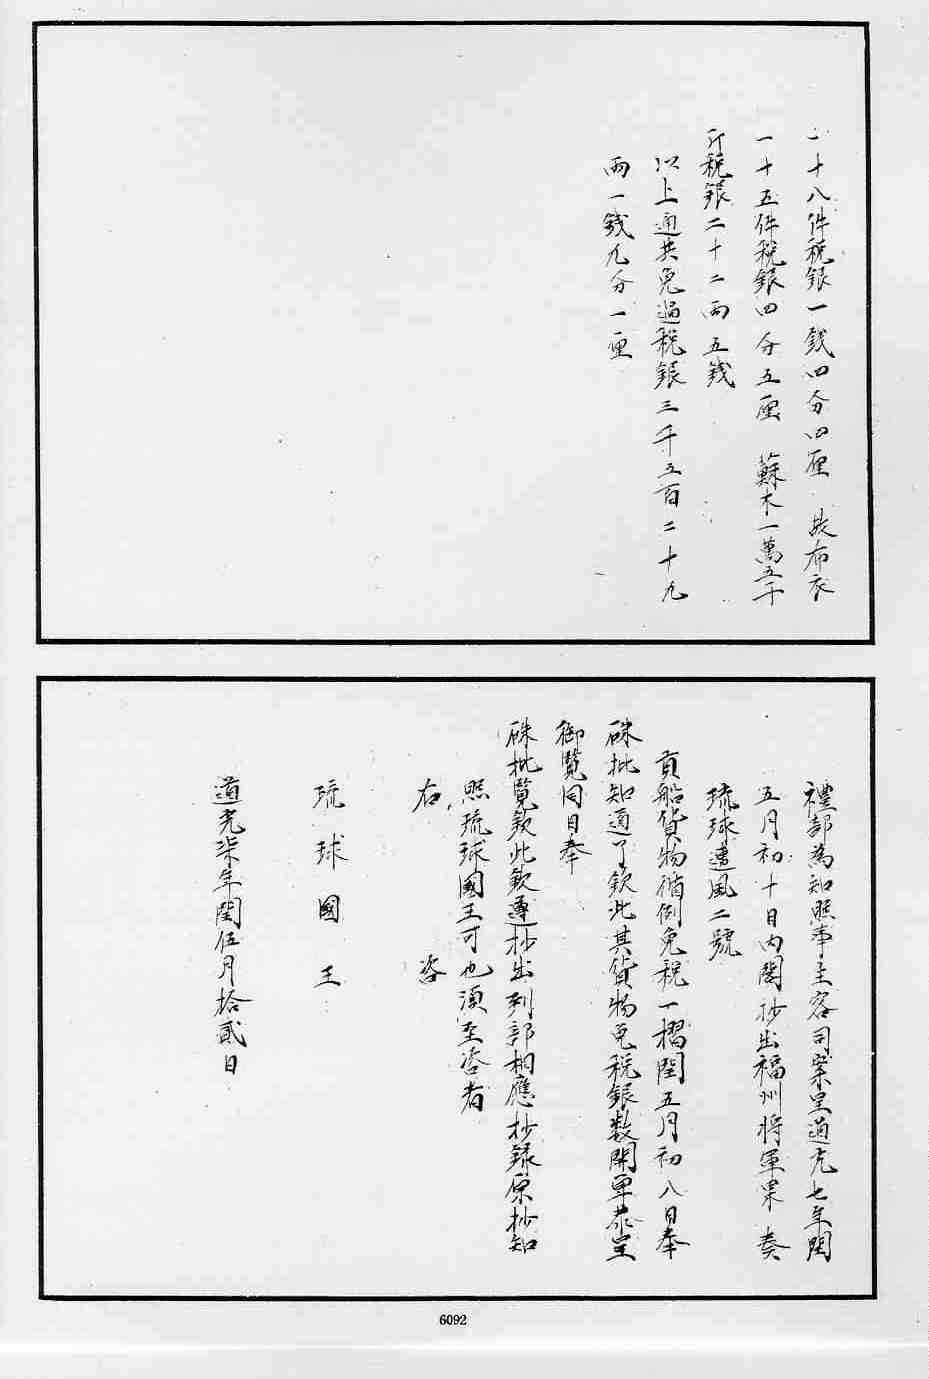 二十八件税銀一錢四分四厘 男布衣
一十五件税銀四分五厘 蘇木一萬五千
斤税銀二十二兩五錢
以上通共免過税銀三千五百二十九
兩一錢九分一厘
禮部為知照事主客司案呈道光七年閏
五月初十日内閣抄出福州將軍果 奏
琉球遭風二號
貢船貨物循例免税一摺閏五月初八日奉
硃批知道了欽此其貨物免税銀數開單恭呈
御覧同日奉
硃批覧欽此欽遵抄出到部相應抄録原抄知
照琉球國王可也須至咨者
右 咨
琉球國王
道光柒年閏伍月拾貳日
6092